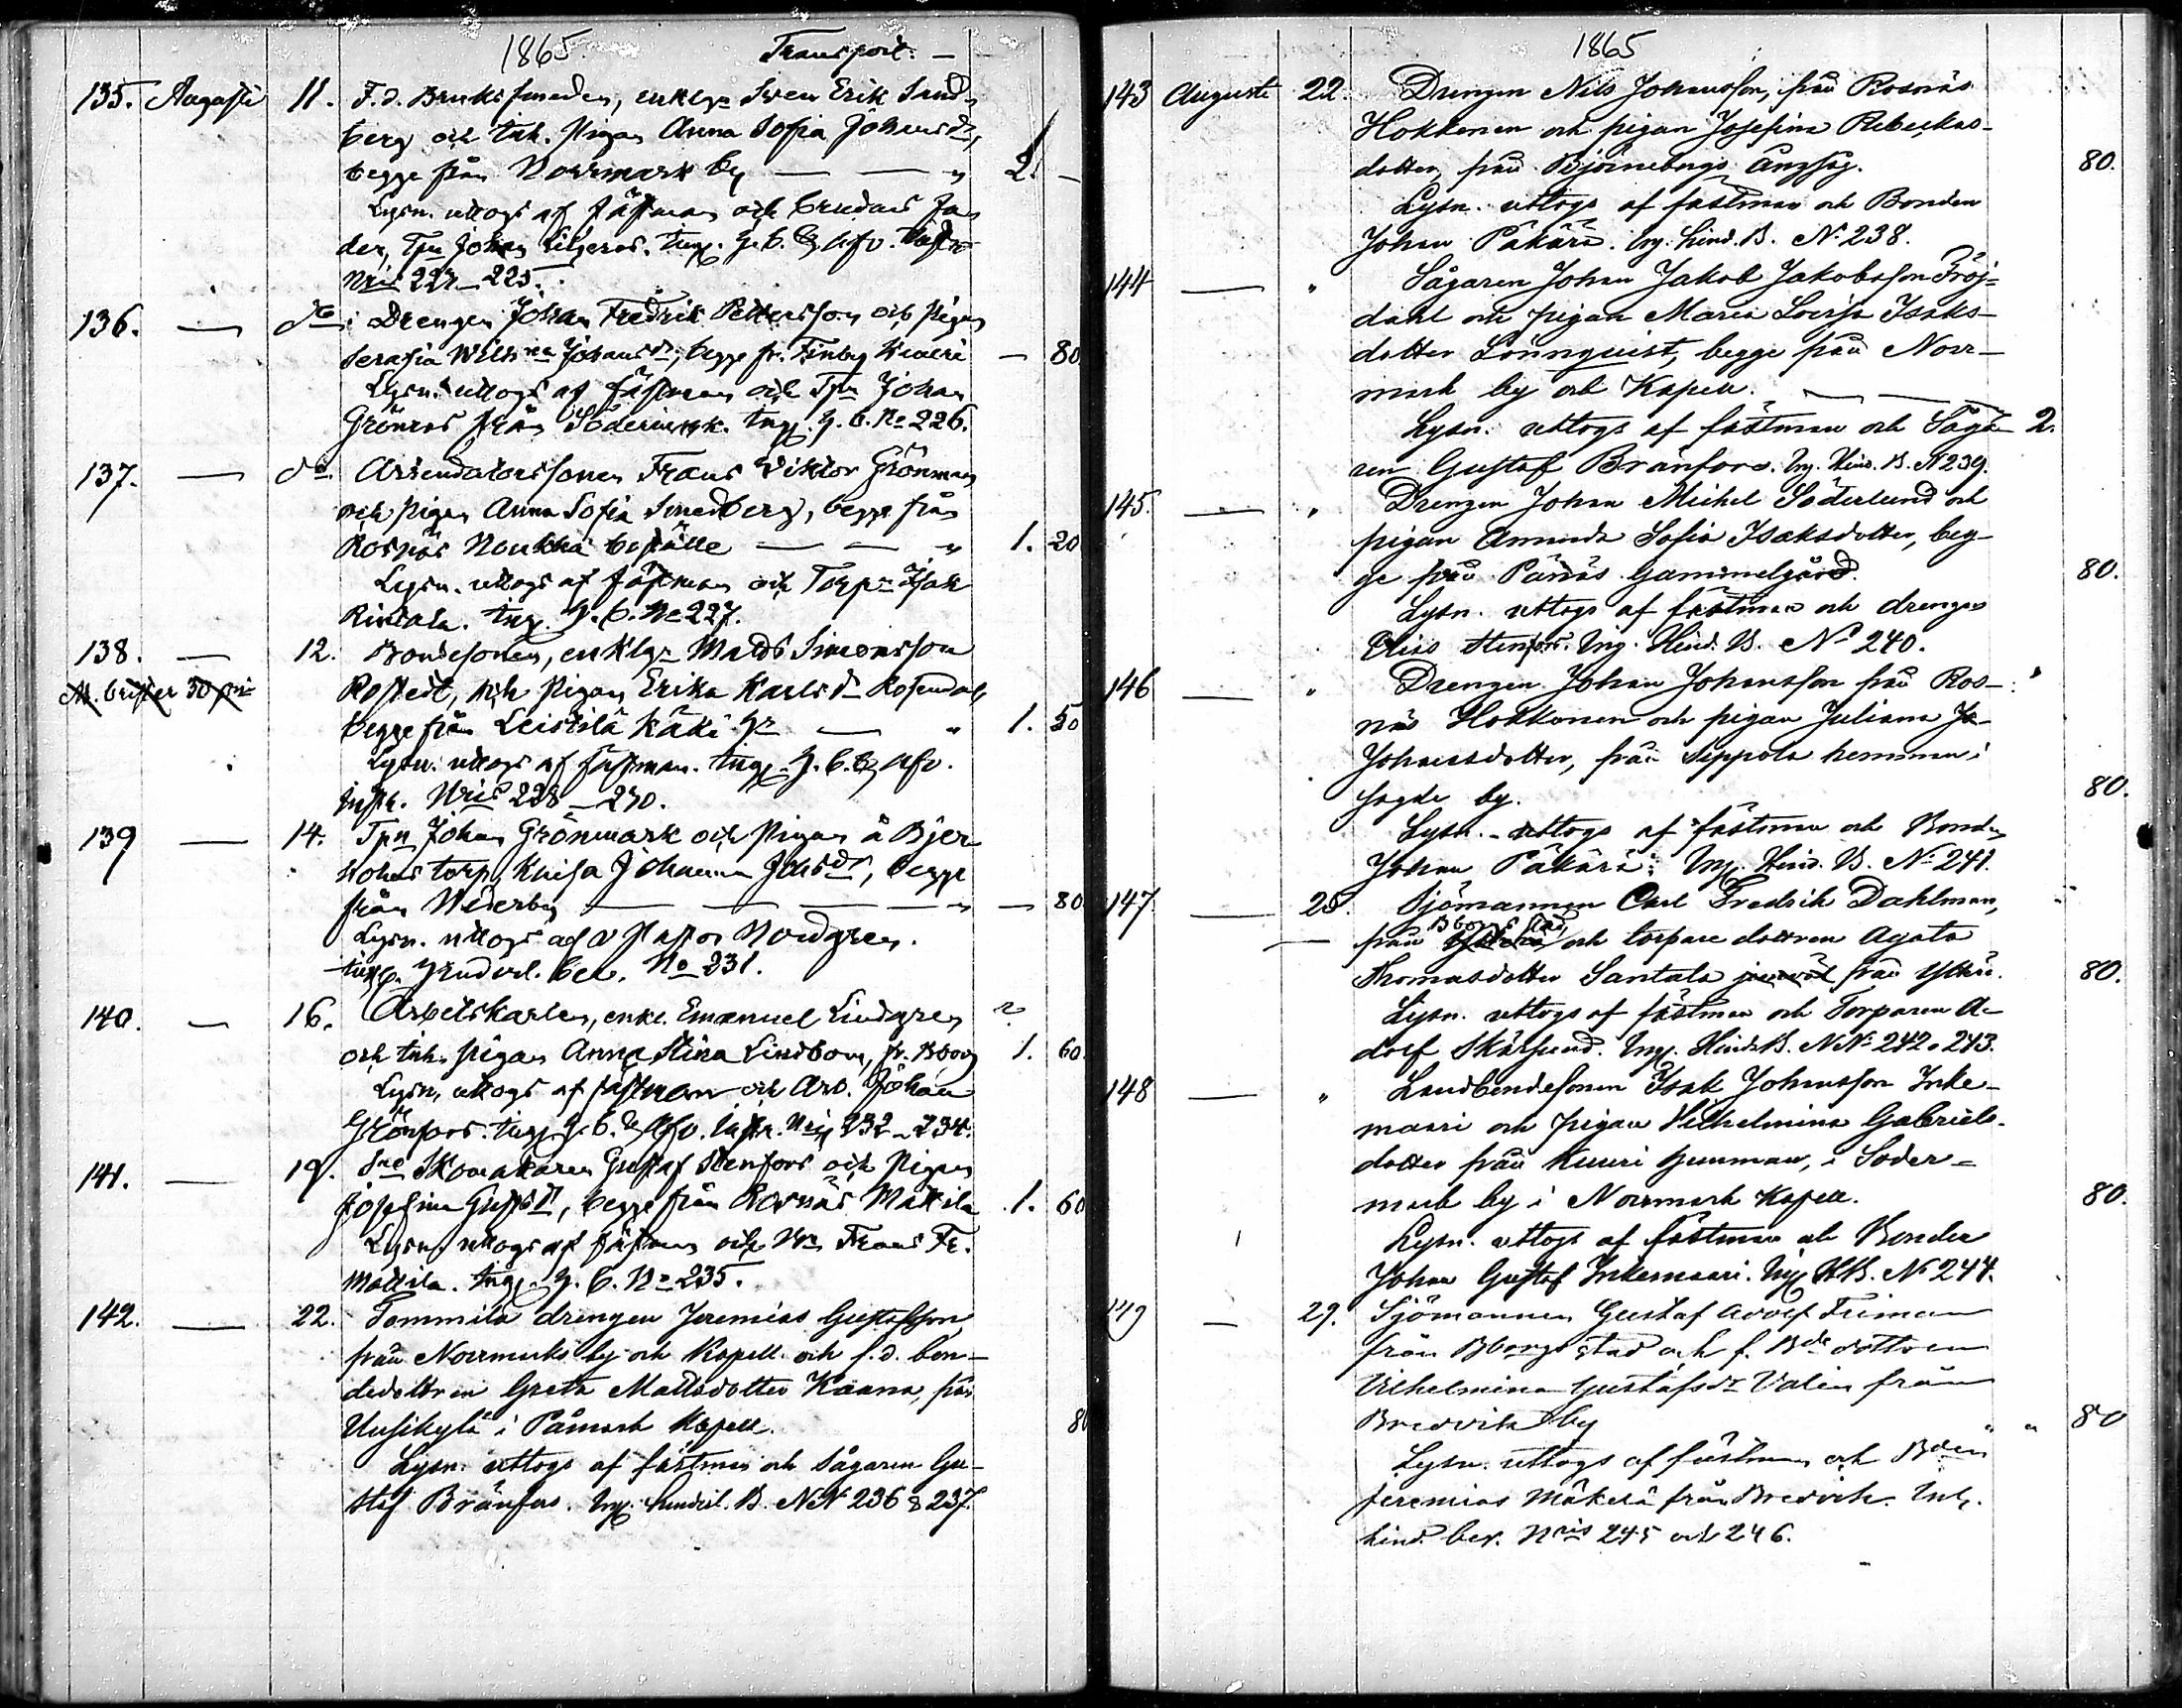 1865. Transport. —
135. Augusti 11. F. d. Bruks smeden, enklgn Sven Erik Sand-
berg och inh. pigan Anna Sofia Johansdr,
begge från Norrmark by — — " 2. —
Lysn. uttogs af fästman och brudens fa-
der, Tpn Johan Liljeros. ingg. h. b. & afv.
Nris 224–225.
136. — do Drengen Johan Fredrik Pettersson och pigan
Serafia Wilhna Johansdr, begge fr. Finby Kiveri — 80
Lysn. uttogs af fästman och Tpn Johan
Grönroos från Södermark. ingg. h. b. No 226.
137. — do Arrendatorssonen Frans Viktor Grönman
och pigan Anna Sofia Smedberg, begge från
Rosnäs Noukka boställe — — " 1. 20
Lysn. uttogs af fästman och Torpn Isak
Rintala. ingg. h. b. No 227.
138. — 12. Bondesonen, enklgn Matts Simonsson
At. brister 30 pni Rostedt, och pigan Erika Karlsdr Rosendal,
begge från Leistilä Käki hn — " 1. 50
Lysn. uttogs af fästman. ingg. h. b. & afv.
instr. Nris 228–230.
139 — 14. Tpn Johan Grönmark och pigan å Bjer
kohns torp, Kaisa Johanna Johsdr, begge
från Wederby — — — " — 80
Lysn. uttogs af v Pastor Nordgren.
ingg. hinderl. bev. No 231.
140. — 16. Arbetskarlen, enkl. Emanuel Lindgren
och inh. pigan Anna Stina Lindbom, fr. Bborg 1. 60.
Lysn. uttogs af fästman och Arb. Johan
Grönfors. ingg. h. b. & Afv. instr. Nris 232–234.
141. — 19. Sne Skomakaren Gustaf Stenfors och pigan
Josefina Gustsdr, begge från Rosnäs Mattila 1. 60
Lysn. uttogs af fästman och Bn Frans Fr.
Mattila. ingg. h. b. No 235.
142. — 22. Tommila drengen Jeremias Gustafsson,
från Norrmarks by och Kapell och f. d. bon-
dedottren Greta Mattsdotter Kaana, från
Uusikylä i Påmark Kapell. 80
Lysn. uttogs af fästman och Sågaren Gu-
staf Bränfors. Ing. hindersl. B. NN 236 & 237.
1865
143 Augusti 22. Drengen Nils Johansson, från Rosnäs
Hokkonen och pigan Josefina Rebeckas-
dotter, från Björneborgs ångsåg. 80.
Lysn. uttogs af fästman och Bonden
Johan Päkäri. Ing. hind. B. No 238.
144 — " Sågaren Johan Jakob Jakobsson Fröj-
dahl och pigan Maria Lovisa Isaks-
dotter Lönnqvist, begge från Norr-
mark by och Kapell. — — —
Lysn. uttogs af fästman och Såga- 2.
ren Gustaf Bränfors. Ing. Hind. B. No 239.
145. — " Drengen Johan Michel Söderlund och
pigan Amanda Sofia Isaksdotter, beg-
ge från Pänäs Gammelgård. 80.
Lysn. uttogs af fästman och drengen
Stenfors. Ing. Hind. B. No 240.
146 — " Drengen Johan Johansson från Ros-
näs Hokkonen och pigan Juliana Jo-
Johansdotter, från Sippola hemman i
sagde by. 80.
Lysn. uttogs af fästman och Bonden
Johan Päkäri. Ing. Hind. B. No 241.
147. — 28. Sjömannen Carl Fredrik Dahlman,
— från Bborgs stad och torpare dottren Agata
Thomasdotter Santala från Ytterö. 80.
Lysn. uttogs af fästman och Torparen A-
dolf Skärlund. Ing. Hind. B. NNo 242 o 243.
148 — " Landbondesonen Isak Johansson Inke-
maari och pigan Vilhelmina Gabriels-
dotter från Kuuri hemman, i Söder-
mark by i Norrmark Kapell. 80.
Lysn. uttogs af fästman och Bonden
Johan Gustaf Inkemaari. Ing. H.B. No 244.
149 — 29. Sjömannen Gustaf Adolf Friman
från Bborgs stad och f. Bde dottren
Vilhelmina Gustafsdr Valin från
Bredvik by " " 80
Lysn. uttogs af fästman och Bden
Jeremias Mäkelä från Bredvik. Inl.
hind. bev. Nris 245 och 246.